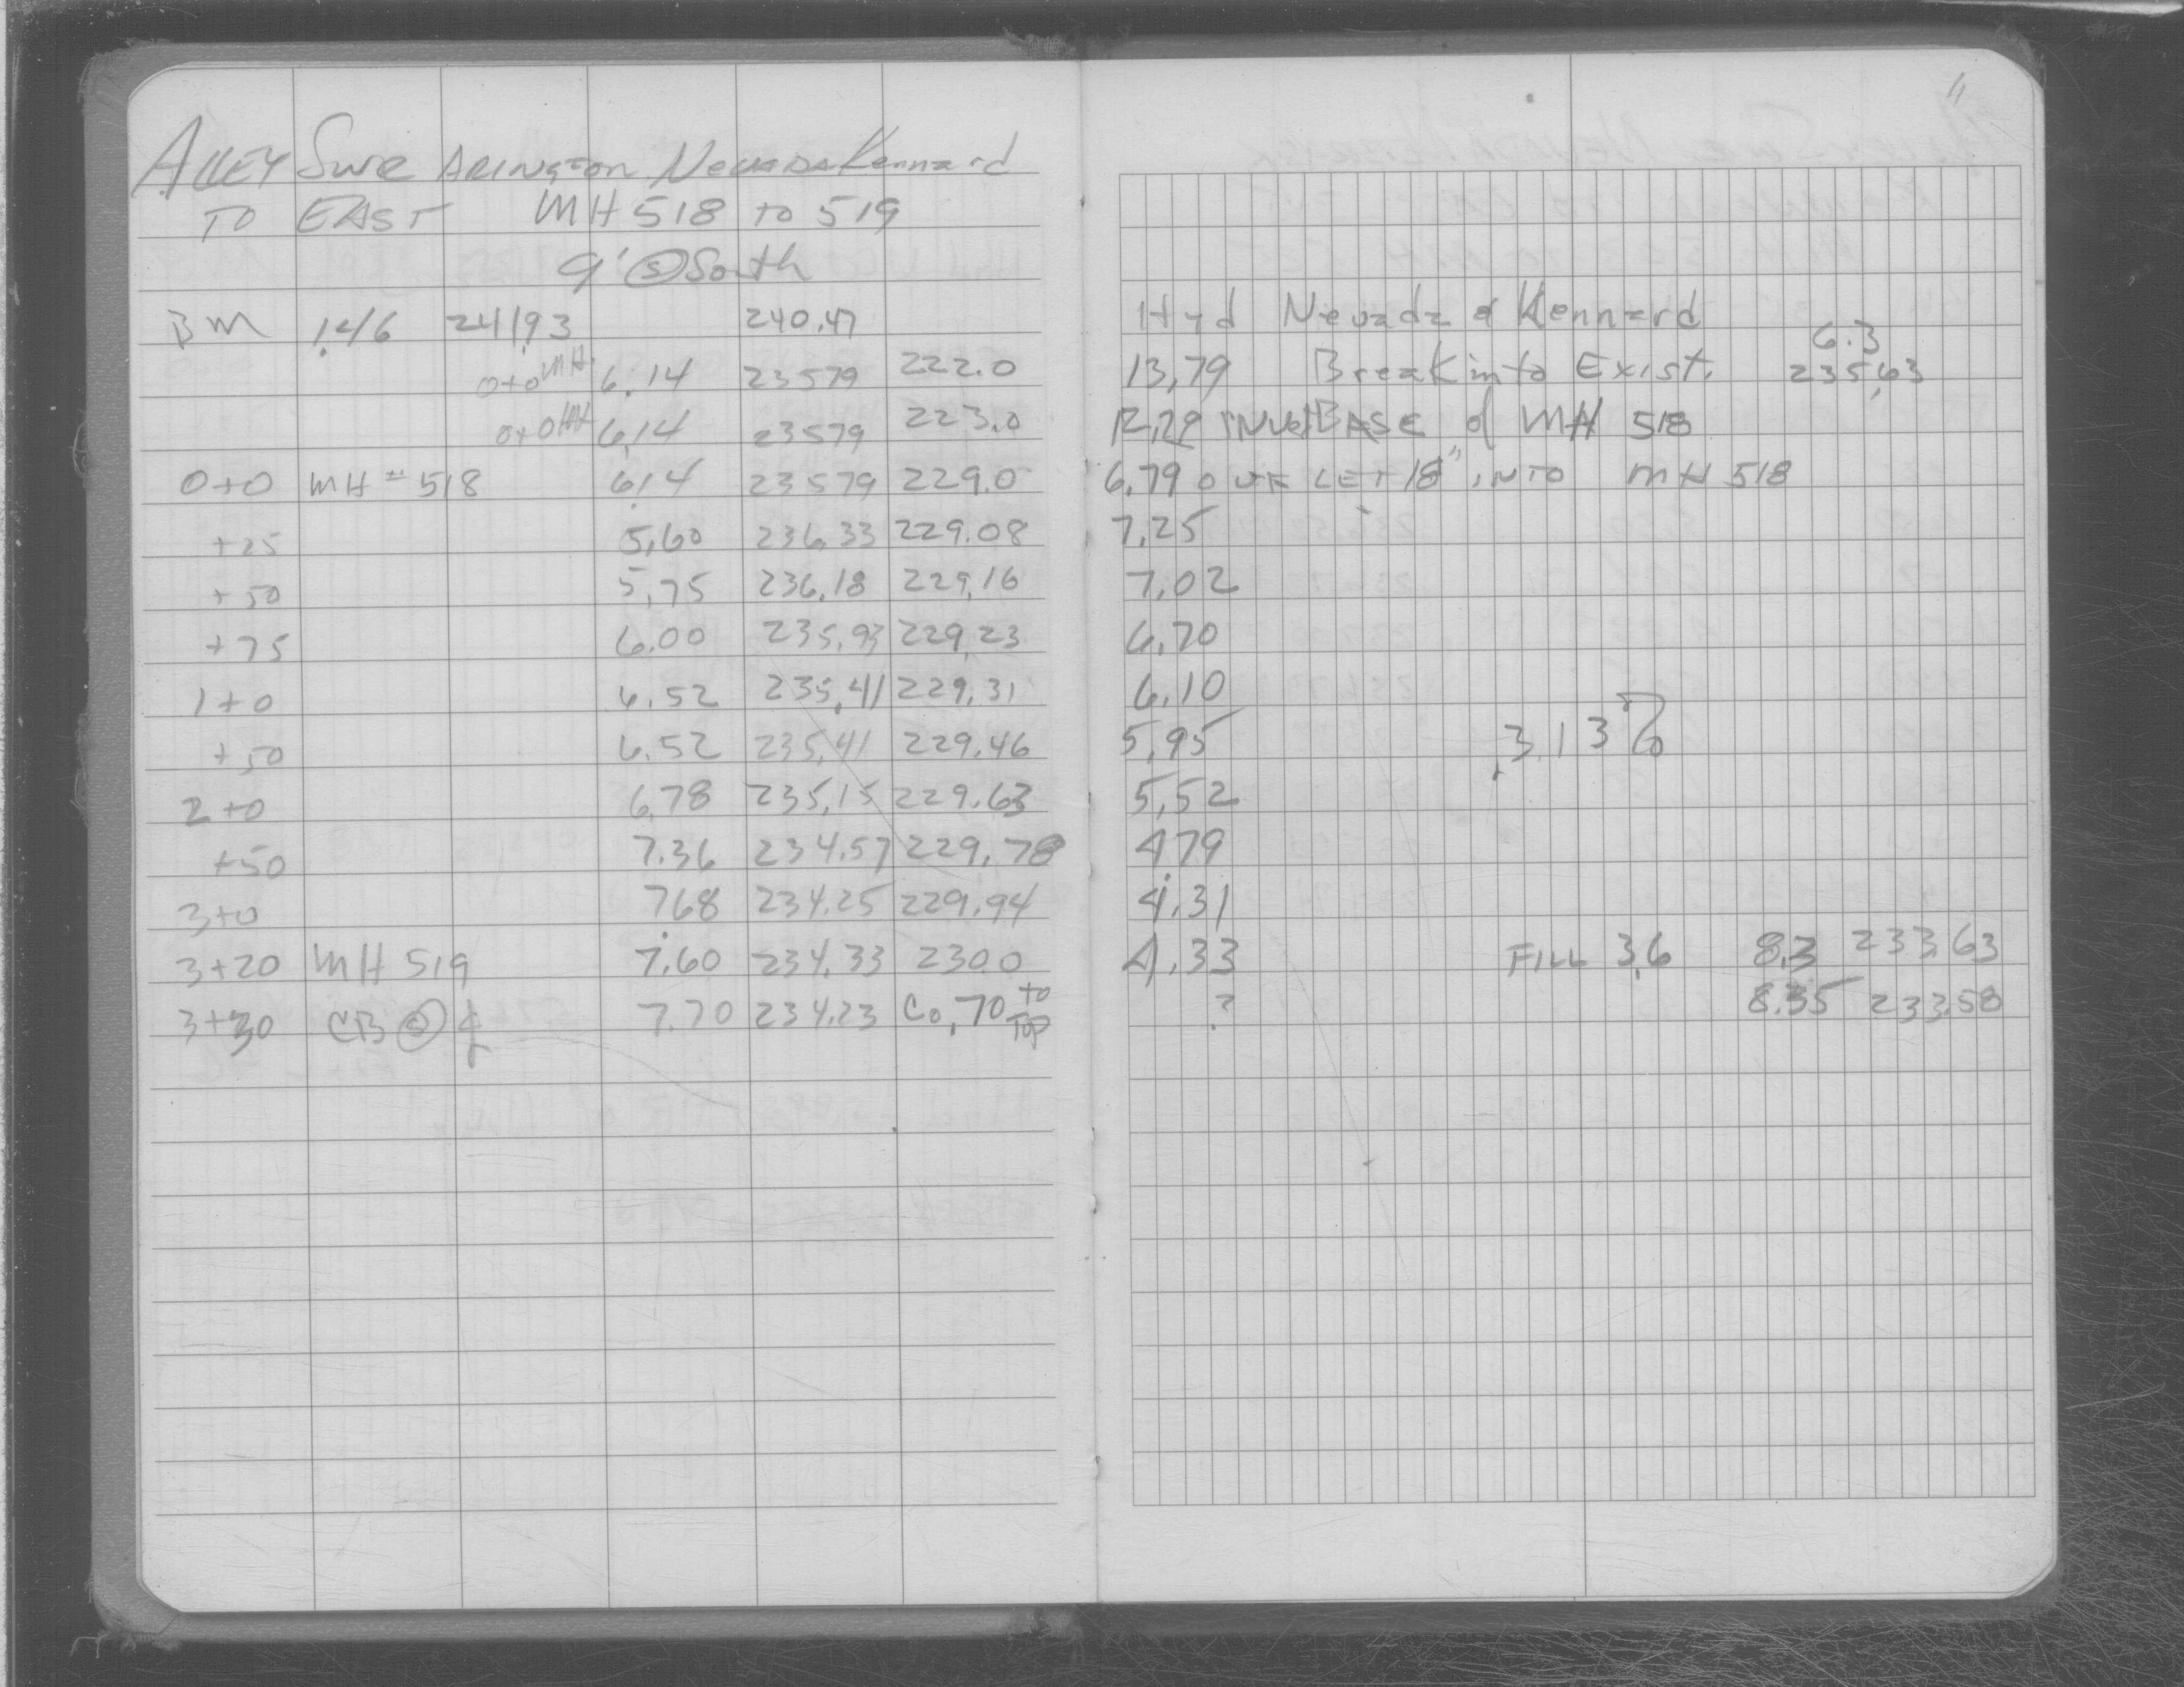 11
ALLEY SWR ARLINGTON NEVADA Kennard
TO EAST MH 518 to 519
9' @ South
BM 1.46 241.93 240.47 Hyd Nevada & Kennard
6.3
0+0 MH 6.14 23579 222.0 13,79 Break into Exist. 235.63
0+0 MH 6.14 23579 223.0 12,79 INVERT BASE of MH 518
0+0 MH # 518 6.14 23579 229.0 6.79 OUTLET 18" INTO MH 518
+25 5,60 236.33 229.08 7,25
+50 5,75 236.18 229.16 7,02
+75 6.00 235.93 229.23 6.70
1+0 6.52 235.41 229.31 6.10
+50 6.52 235.41 229.46 5,95 .313%
2+0 6.78 235.15 229.63 5,52
+50 7.36 234.57 229.78 4.79
3+0 7.68 234.25 229.94 4.31
3+20 MH 519 7.60 234.33 230.0 4.33 FILL 3.6 8.3 233.63
3+30 CB Ⓢ ℄ 7.70 234.23 C0.70 to Top ? 8.35 233.58